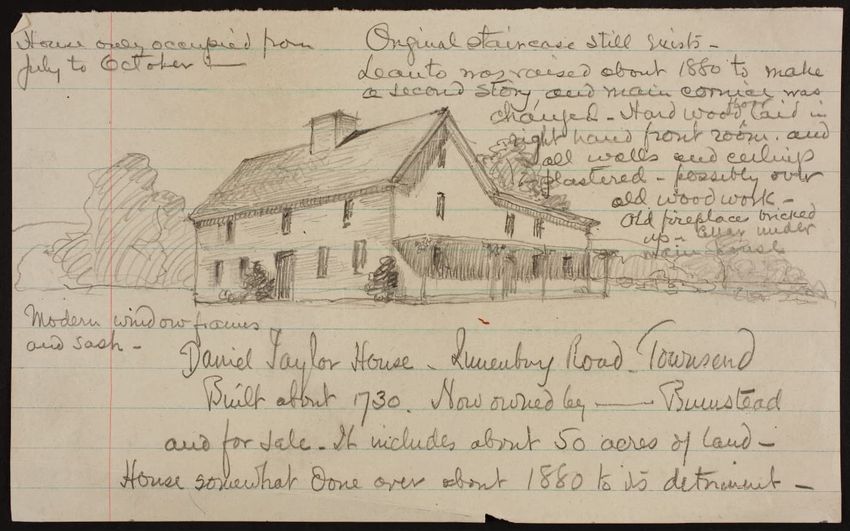 House only occupied from
July to October -
Original staircase still exists -
Leanto was raised about 1880 to make
a second story, and main cornice was
changed - Hard wood floor laid in
right hand front room. and
all walls and ceilings
plastered - possibly over
old woodwork -
Old fireplaces bricked
up - Cellar under
main house
Modern window frames
and sash -
Daniel Taylor House - Lunenburg Road - Townsend
Built about 1730. Now owned by —— Bumstead
and for sale - It includes about 50 acres of land -
House somewhat done over about 1880 to its detriment -